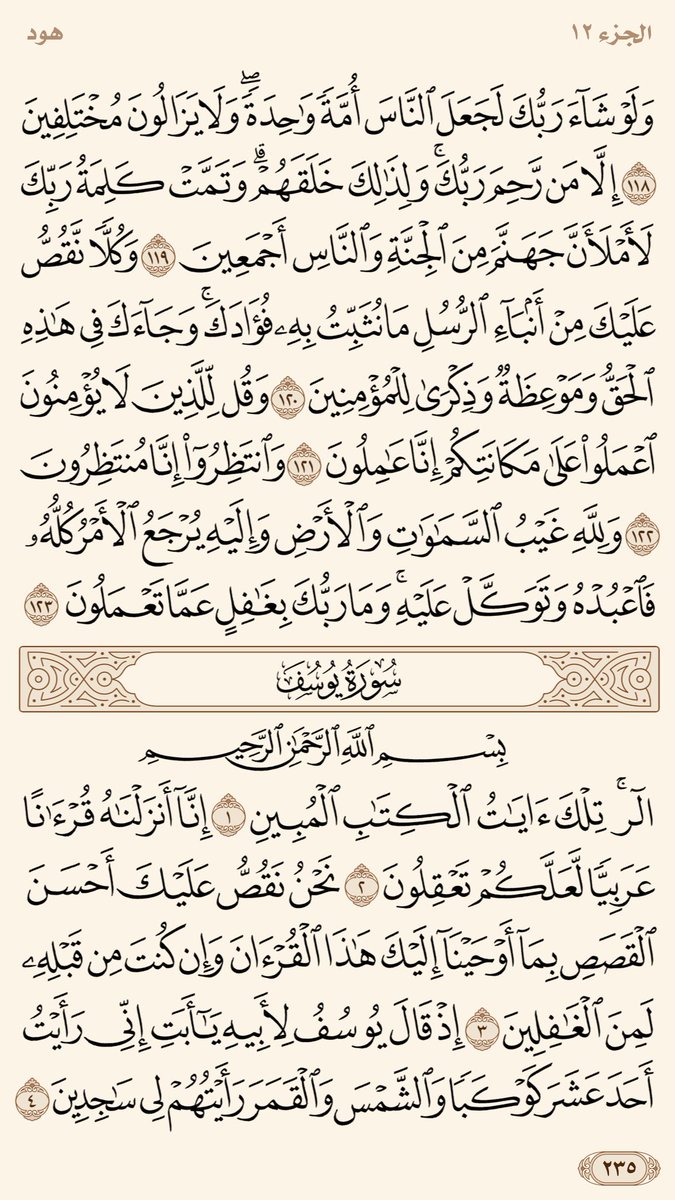 الجزء ١٢
هود
وَلَوۡ شَآءَ رَبُّكَ لَجَعَلَ ٱلنَّاسَ أُمَّةٗ وَٰحِدَةٗۖ وَلَا يَزَالُونَ مُخۡتَلِفِينَ
١١٨ إِلَّا مَن رَّحِمَ رَبُّكَۚ وَلِذَٰلِكَ خَلَقَهُمۡۗ وَتَمَّتۡ كَلِمَةُ رَبِّكَ
لَأَمۡلَأَنَّ جَهَنَّمَ مِنَ ٱلۡجِنَّةِ وَٱلنَّاسِ أَجۡمَعِينَ ١١٩ وَكُلّٗا نَّقُصُّ
عَلَيۡكَ مِنۡ أَنۢبَآءِ ٱلرُّسُلِ مَا نُثَبِّتُ بِهِۦ فُؤَادَكَۚ وَجَآءَكَ فِي هَٰذِهِ
ٱلۡحَقُّ وَمَوۡعِظَةٞ وَذِكۡرَىٰ لِلۡمُؤۡمِنِينَ ١٢٠ وَقُل لِّلَّذِينَ لَا يُؤۡمِنُونَ
ٱعۡمَلُواْ عَلَىٰ مَكَانَتِكُمۡ إِنَّا عَٰمِلُونَ ١٢١ وَٱنتَظِرُوٓاْ إِنَّا مُنتَظِرُونَ
١٢٢ وَلِلَّهِ غَيۡبُ ٱلسَّمَٰوَٰتِ وَٱلۡأَرۡضِ وَإِلَيۡهِ يُرۡجَعُ ٱلۡأَمۡرُ كُلُّهُۥ
فَٱعۡبُدۡهُ وَتَوَكَّلۡ عَلَيۡهِۚ وَمَا رَبُّكَ بِغَٰفِلٍ عَمَّا تَعۡمَلُونَ ١٢٣
سُورَةُ يُوسُفَ
بِسۡمِ ٱللَّهِ ٱلرَّحۡمَٰنِ ٱلرَّحِيمِ
الٓرۚ تِلۡكَ ءَايَٰتُ ٱلۡكِتَٰبِ ٱلۡمُبِينِ ١ إِنَّآ أَنزَلۡنَٰهُ قُرۡءَٰنًا
عَرَبِيّٗا لَّعَلَّكُمۡ تَعۡقِلُونَ ٢ نَحۡنُ نَقُصُّ عَلَيۡكَ أَحۡسَنَ
ٱلۡقَصَصِ بِمَآ أَوۡحَيۡنَآ إِلَيۡكَ هَٰذَا ٱلۡقُرۡءَانَ وَإِن كُنتَ مِن قَبۡلِهِۦ
لَمِنَ ٱلۡغَٰفِلِينَ ٣ إِذۡ قَالَ يُوسُفُ لِأَبِيهِ يَٰٓأَبَتِ إِنِّي رَأَيۡتُ
أَحَدَ عَشَرَ كَوۡكَبٗا وَٱلشَّمۡسَ وَٱلۡقَمَرَ رَأَيۡتُهُمۡ لِي سَٰجِدِينَ ٤
٢٣٥